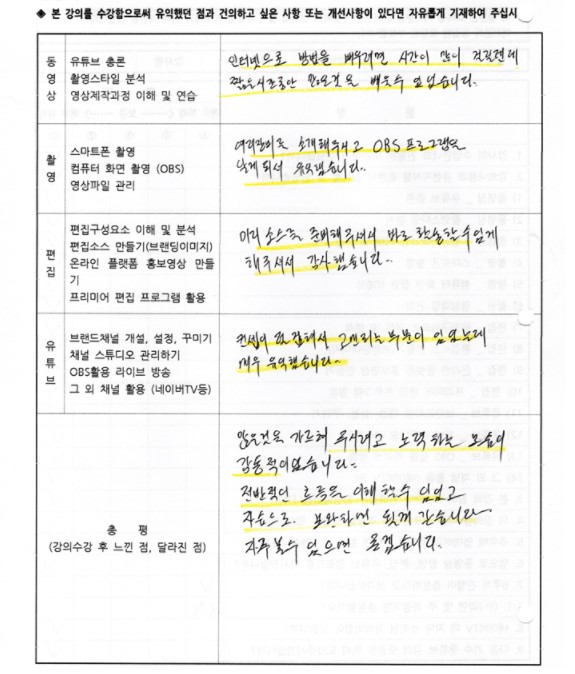 ◈ 본 강의를 수강함으로써 유익했던 점과 건의하고 싶은 사항 또는 개선사항이 있다면 자유롭게 기재하여 주십시
동영상
유튜브 총론
촬영스타일 분석
영상제작과정 이해 및 연습
인터넷으로 방법을 배우려면 시간이 많이 걸릴텐데
짧은시간동안 많은것을 배울수 있었습니다.
촬영
스마트폰 촬영
컴퓨터 화면 촬영 (OBS)
영상파일 관리
소개해주시고 OBS 프로그램을
알게되서 유익했습니다.
편집
편집구성요소 이해 및 분석
편집소스 만들기(브랜딩이미지)
온라인 플랫폼 홍보영상 만들
기
프리미어 편집 프로그램 활용
미리 소스를 준비해주셔서 바로 학습할수있게
해주셔서 감사했습니다.
유튜브
브랜드채널 개설, 설정, 꾸미기
채널 스튜디오 관리하기
OBS활용 라이브 방송
그 외 채널 활용 (네이버TV등)
부분이 있었는데
매우 유익했습니다.
총 평
(강의수강 후 느낀 점, 달라진 점)
많은것을 가르쳐 주시려고 노력하는 모습이
감동적이었습니다.
전반적인 흐름을 이해할수 있었고
자습으로 보완하면 될꺼 같습니다.
자주볼수 있으면 좋겠습니다.